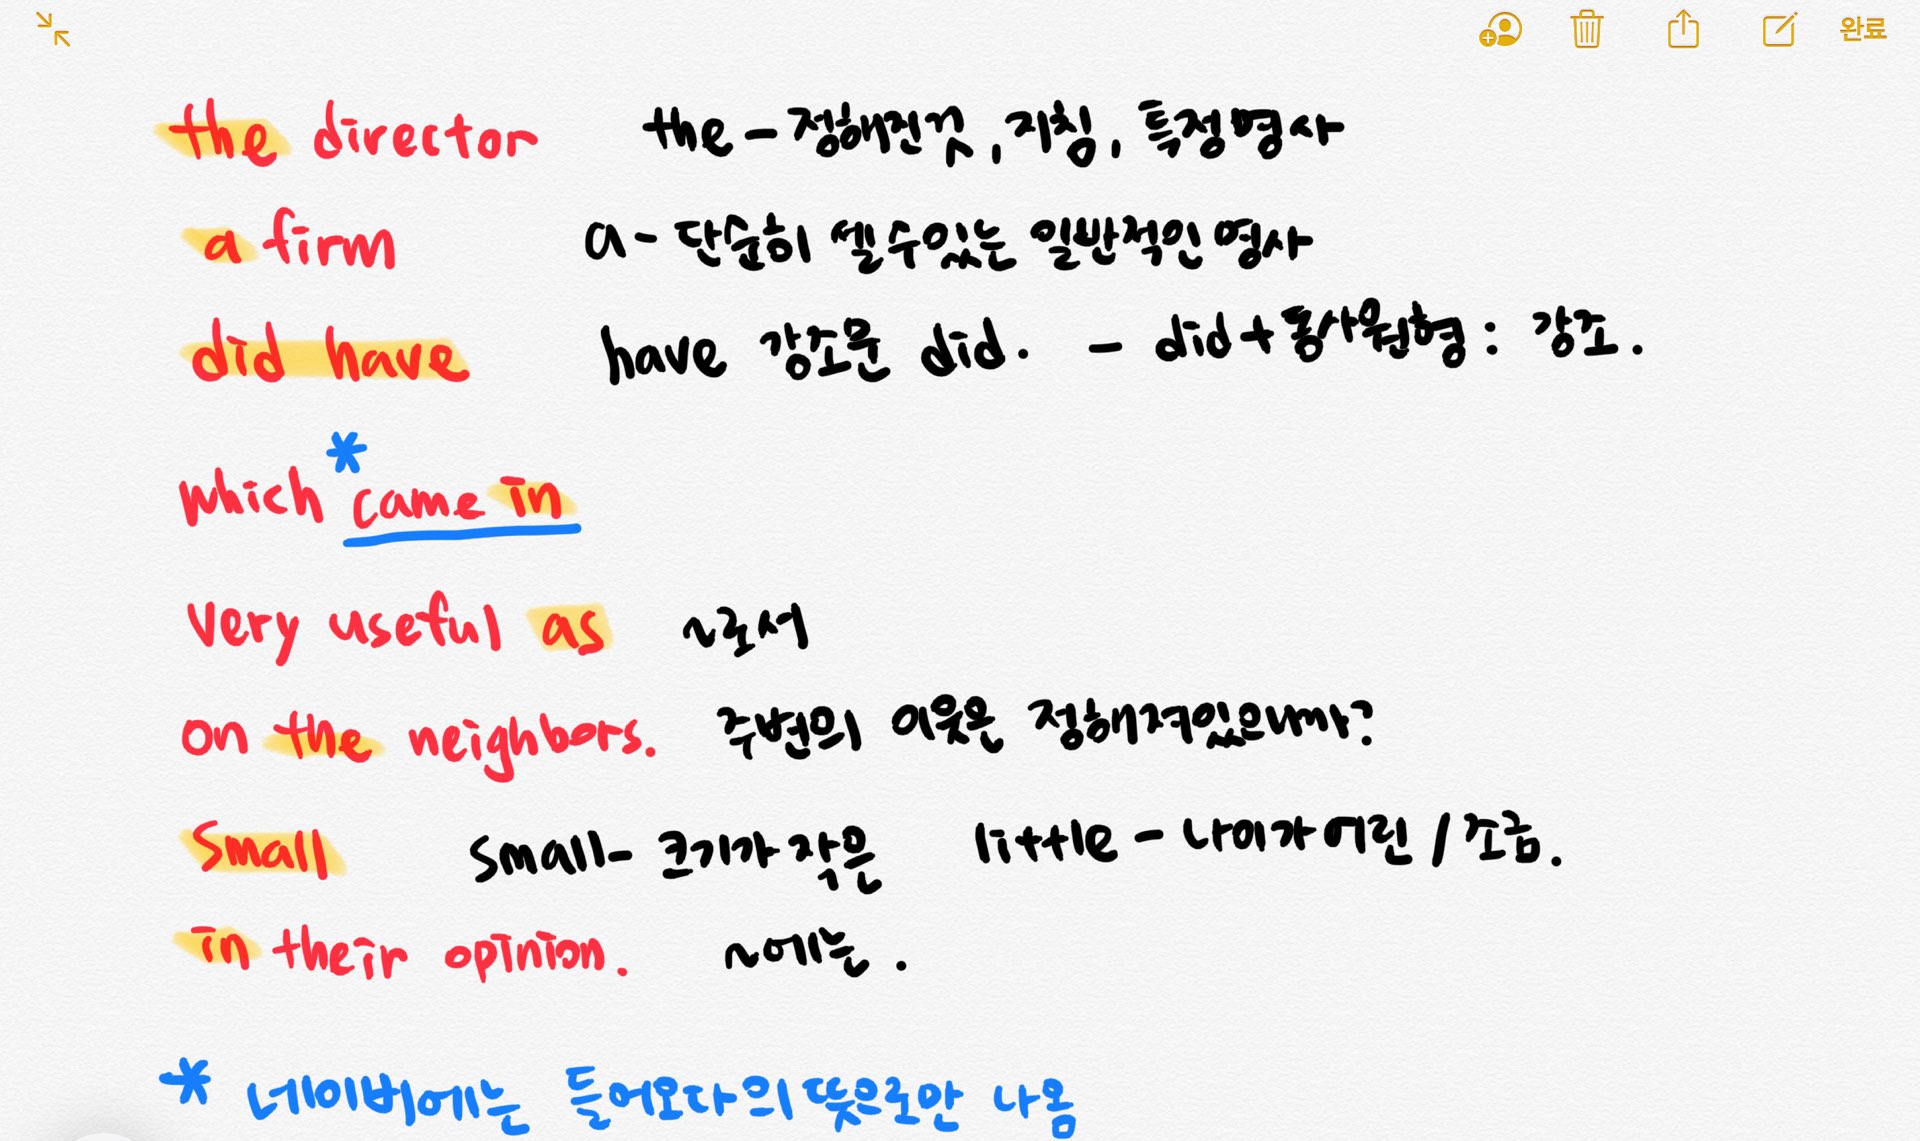 완료
the director the - 정해진것, 지칭, 특정명사
a firm a - 단순히 셀수있는 일반적인 명사
did have have 강조문 did. - did + 동사원형 : 강조.
which *came in
very useful as ~로서
on the neighbors. 주변의 이웃은 정해져있으니까?
Small Small - 크기가 작은 little - 나이가 어린 / 조금.
in their opinion. ~에는.
* 네이버에는 들어오다의 뜻으로만 나옴